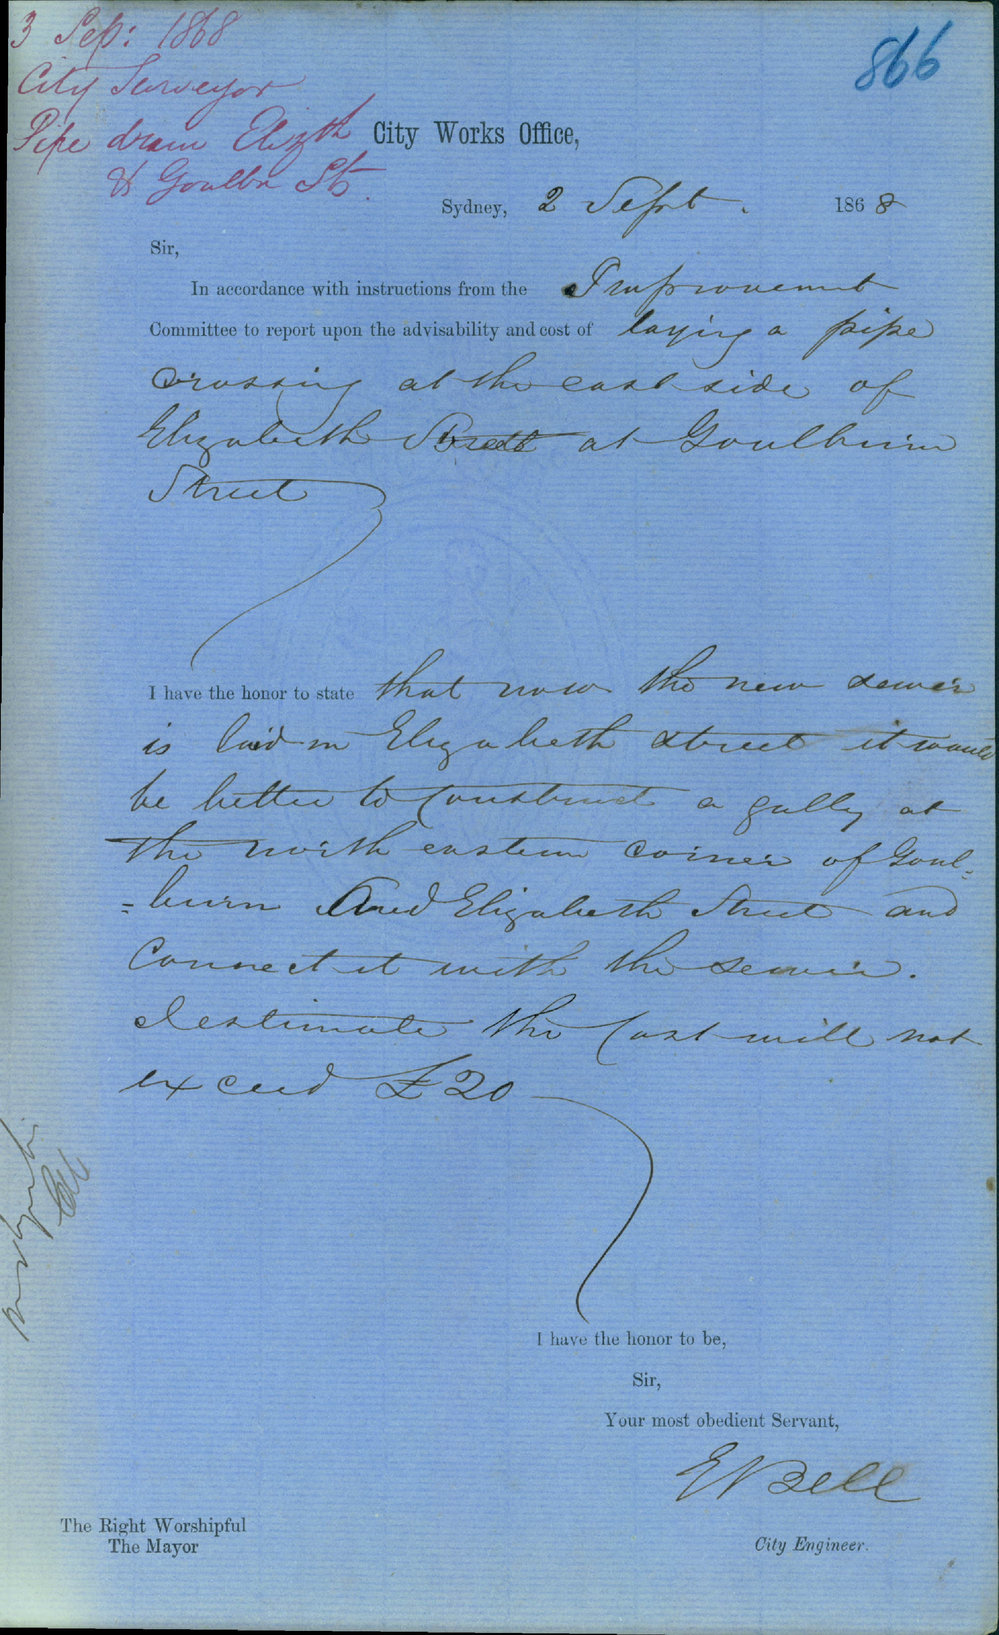 3 Sep: 1868
City Surveyor
Pipe drain Elizth
& Goulbn St.
866
City Works Office,
Sydney, 2 Sept. 1868
Sir,
In accordance with instructions from the Improvement
Committee to report upon the advisability and cost of laying a pipe
crossing at the east side of
Elizabeth Street at Goulburn
Street
I have the honor to state that now the new sewer
is laid in Elizabeth Street it would
be better to construct a gully at
the north eastern corner of Goul=
=burn And Elizabeth Street and
Connect it with the sewer.
I estimate the Cost will not
exceed £20
I have the honor to be,
Sir,
Your most obedient Servant,
E Bell
City Engineer.
The Right Worshipful
The Mayor